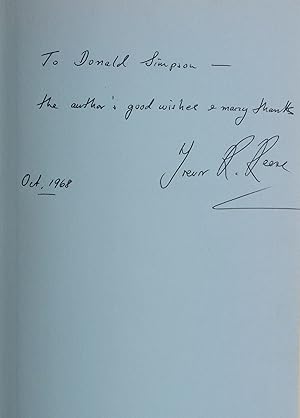 To Donald Simpson —
the author's good wishes & many thanks
Trevor R. Reese
Oct, 1968